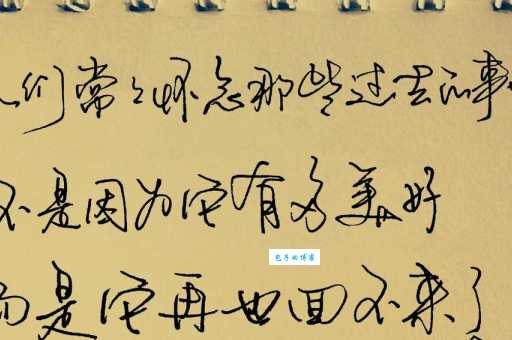 人们常々怀念那些过去的事
不是因为它有多美好
而是它再也回不来了
包子的博客